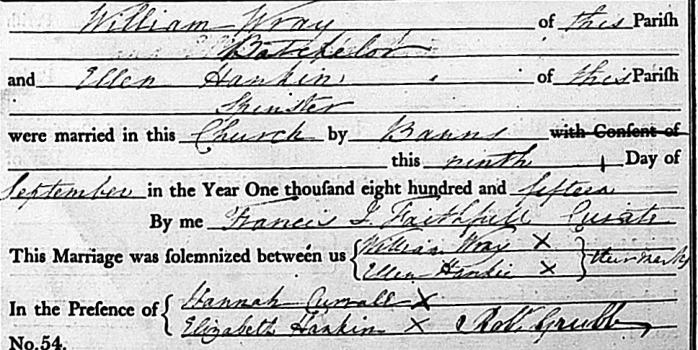 William Wray of this Pariſh
Batchelor
and Ellen Hankin of this Pariſh
Spinster
were married in this Church by Banns with Conſent of
this ninth Day of
September in the Year One thouſand eight hundred and fifteen
By me Francis J. Faithfull Curate
This Marriage was ſolemnized between us { William Wray X
Ellen Hankin X } their marks
In the Preſence of { Hannah Currall X
Elizabeth Hankin X Robt. Grubb
No. 54.